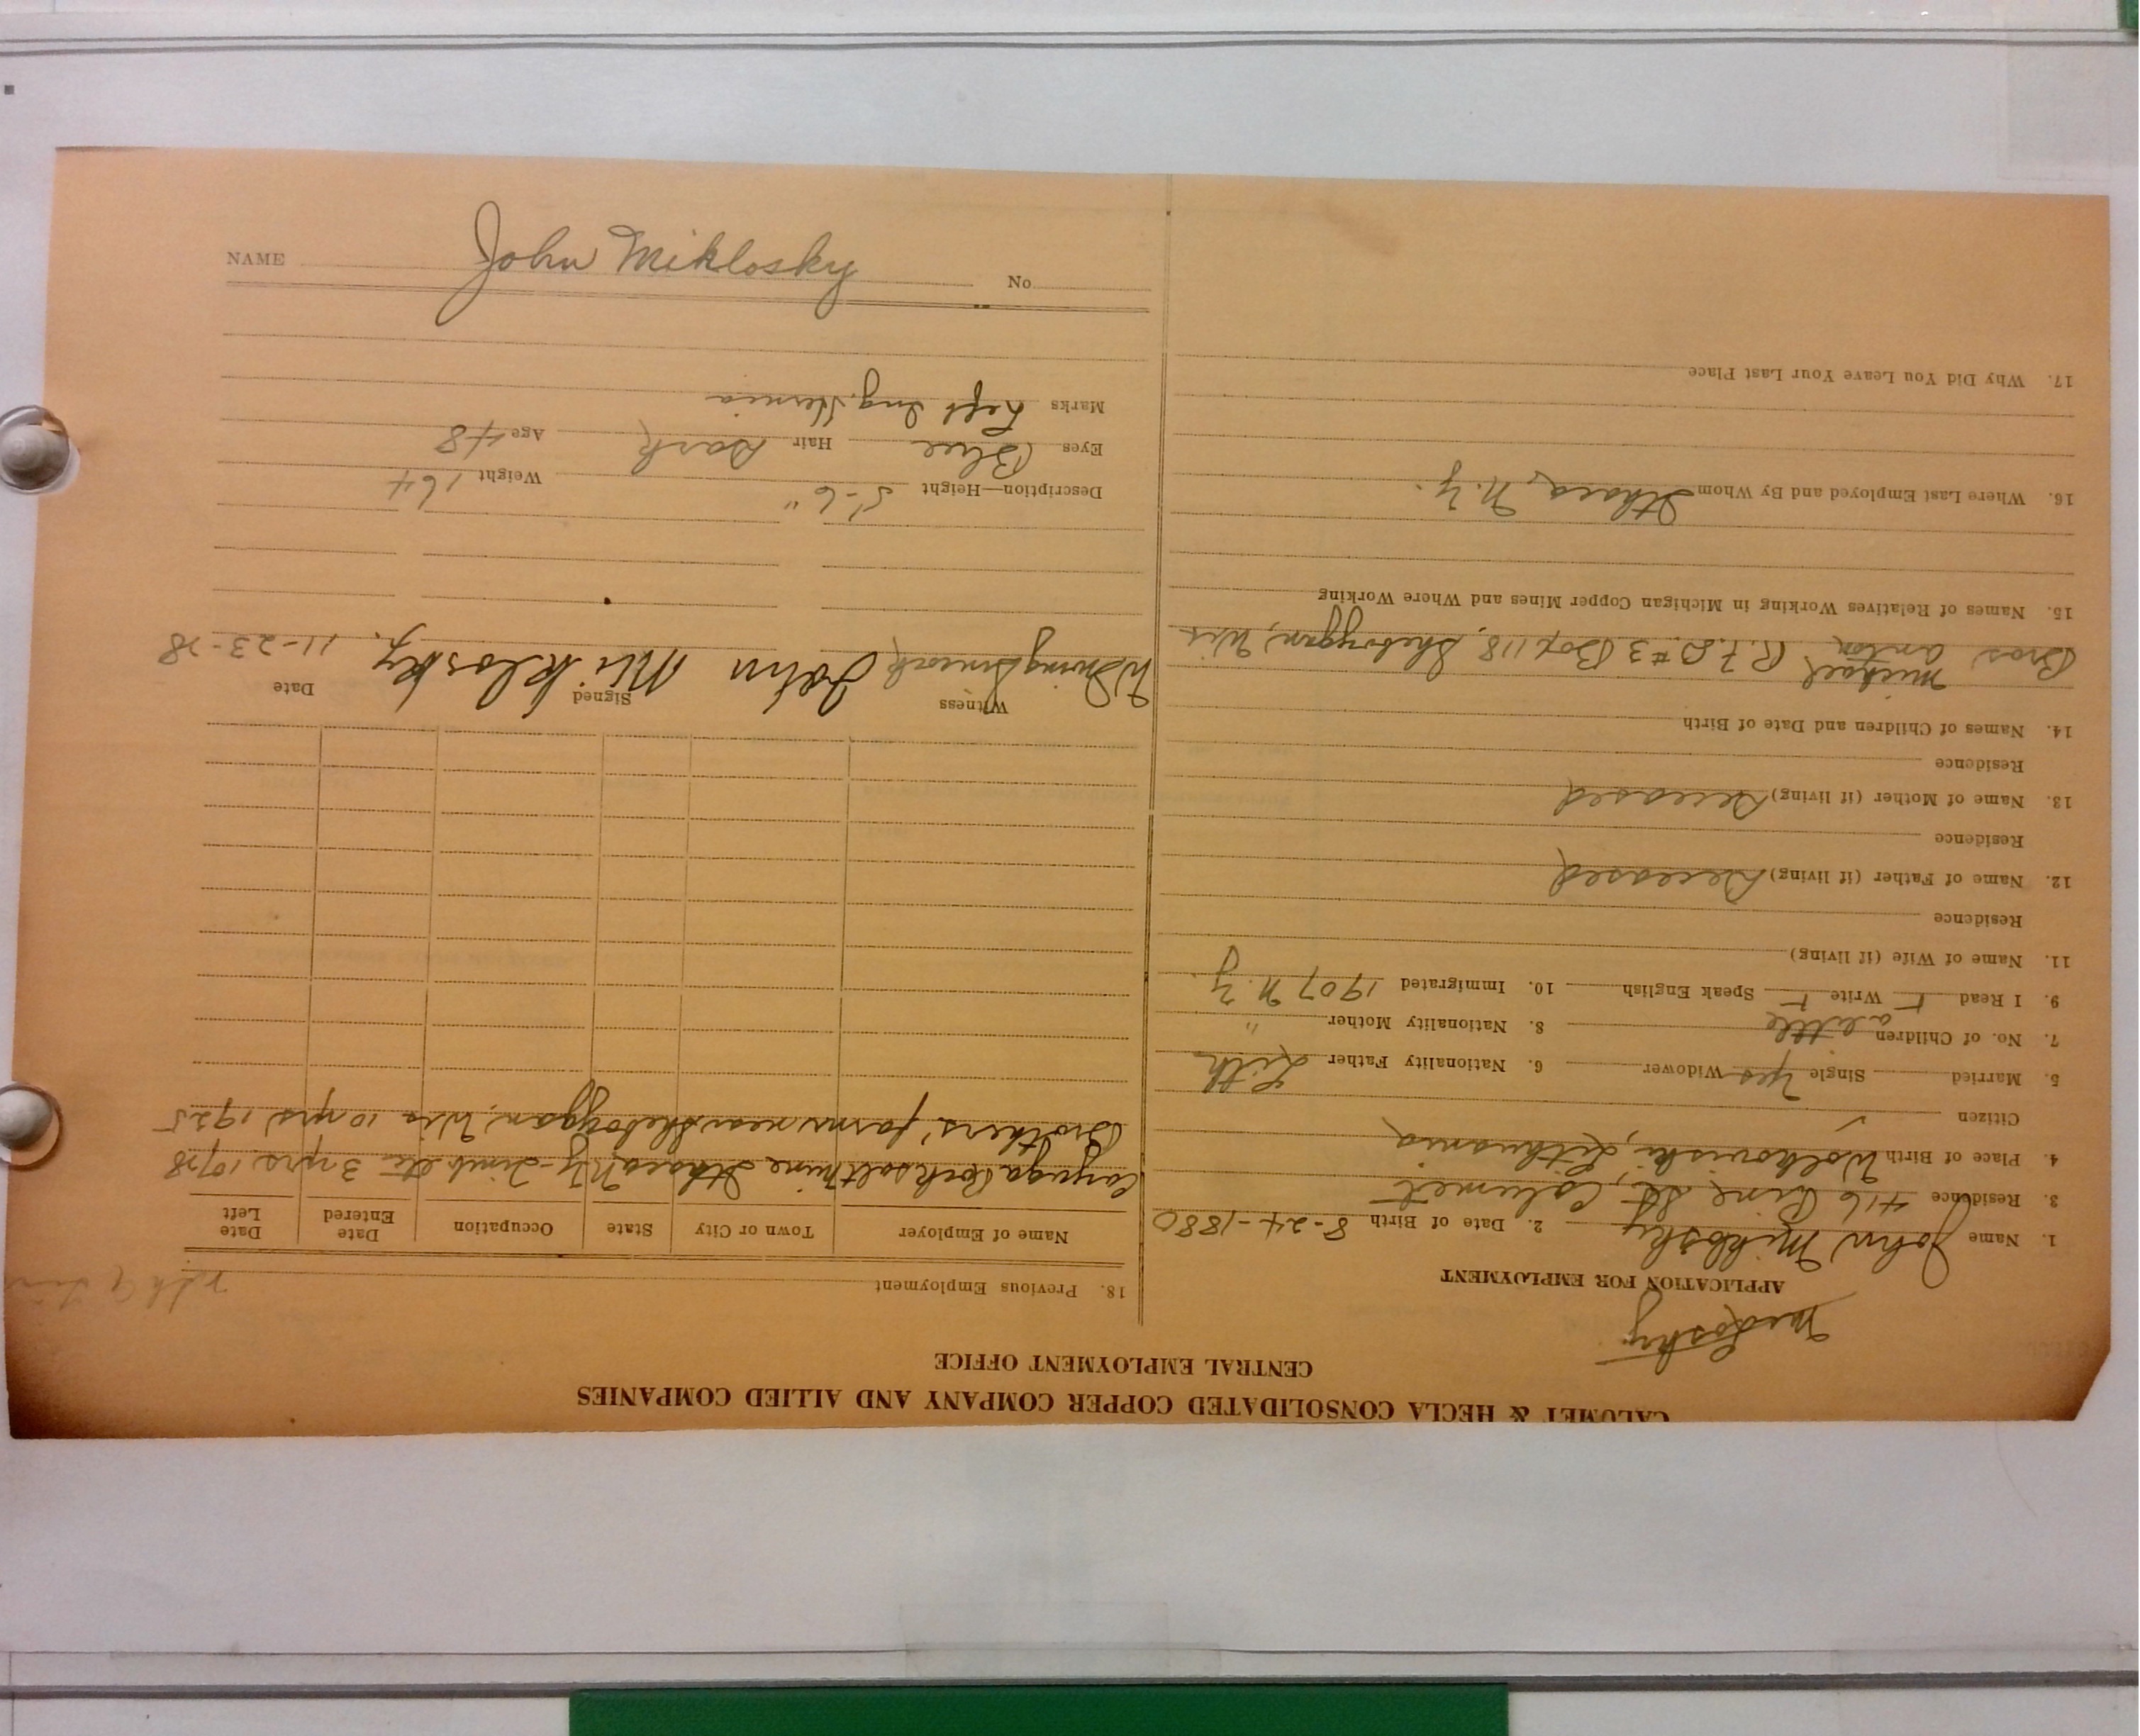 CALUMET & HECLA CONSOLIDATED COPPER COMPANY AND ALLIED COMPANIES
CENTRAL EMPLOYMENT OFFICE
APPLICATION FOR EMPLOYMENT
1. Name John Miklosky 2. Date of Birth 8-24-1880
3. Residence 416 Pine St, Calumet
4. Place of Birth Lithuania
Citizen
5. Married Single Yes Widower 6. Nationality Father Lith
7. No. of Children 8. Nationality Mother "
a little
9. I Read Write Speak English 10. Immigrated 1907 N.Y.
11. Name of Wife (if living)
Residence
12. Name of Father (if living) Deceased
Residence
13. Name of Mother (if living) Deceased
Residence
14. Names of Children and Date of Birth
Michael
Bros Anton R.F.D #3 Box 118, Sheboygan, Wis
15. Names of Relatives Working in Michigan Copper Mines and Where Working
16. Where Last Employed and By Whom Ithaca, N.Y.
17. Why Did You Leave Your Last Place
18. Previous Employment
Name of Employer Town or City State Occupation Date Entered Date Left
Cayuga Rock salt mine Ithaca N.Y. 3 yrs 1928
Brothers' farm near Sheboygan, Wis 10 yrs 1925
Witness Signed Date
John Miklosky 11-23-28
Description—Height 5'-6" Weight 164
Eyes Blue Hair Dark Age 48
Marks Left Ing. Hernia
NAME John Miklosky No.